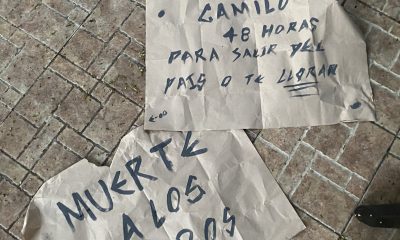 CAMILO
48 HORAS
PARA SALIR DEL
PAIS O TE LLORAN
MUERTE
A LOS